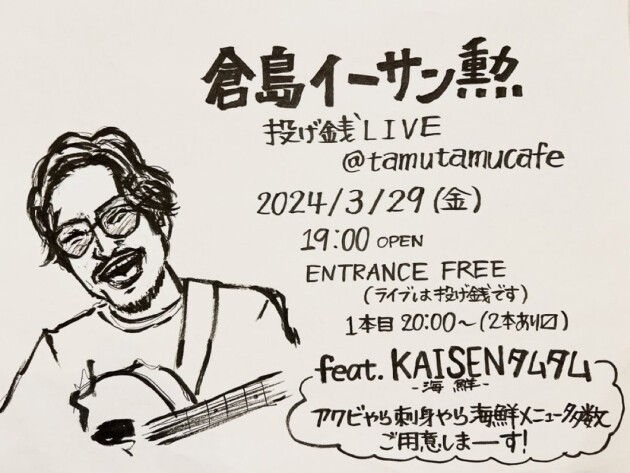 倉島イーサン勲
投げ銭LIVE
@tamutamucafe
2024/3/29(金)
19:00 OPEN
ENTRANCE FREE
(ライブは投げ銭です)
1本目 20:00〜(2本あり〼)
feat. KAISENタムタム
-海鮮-
アワビやら刺身やら海鮮メニュー多数
ご用意しまーす!